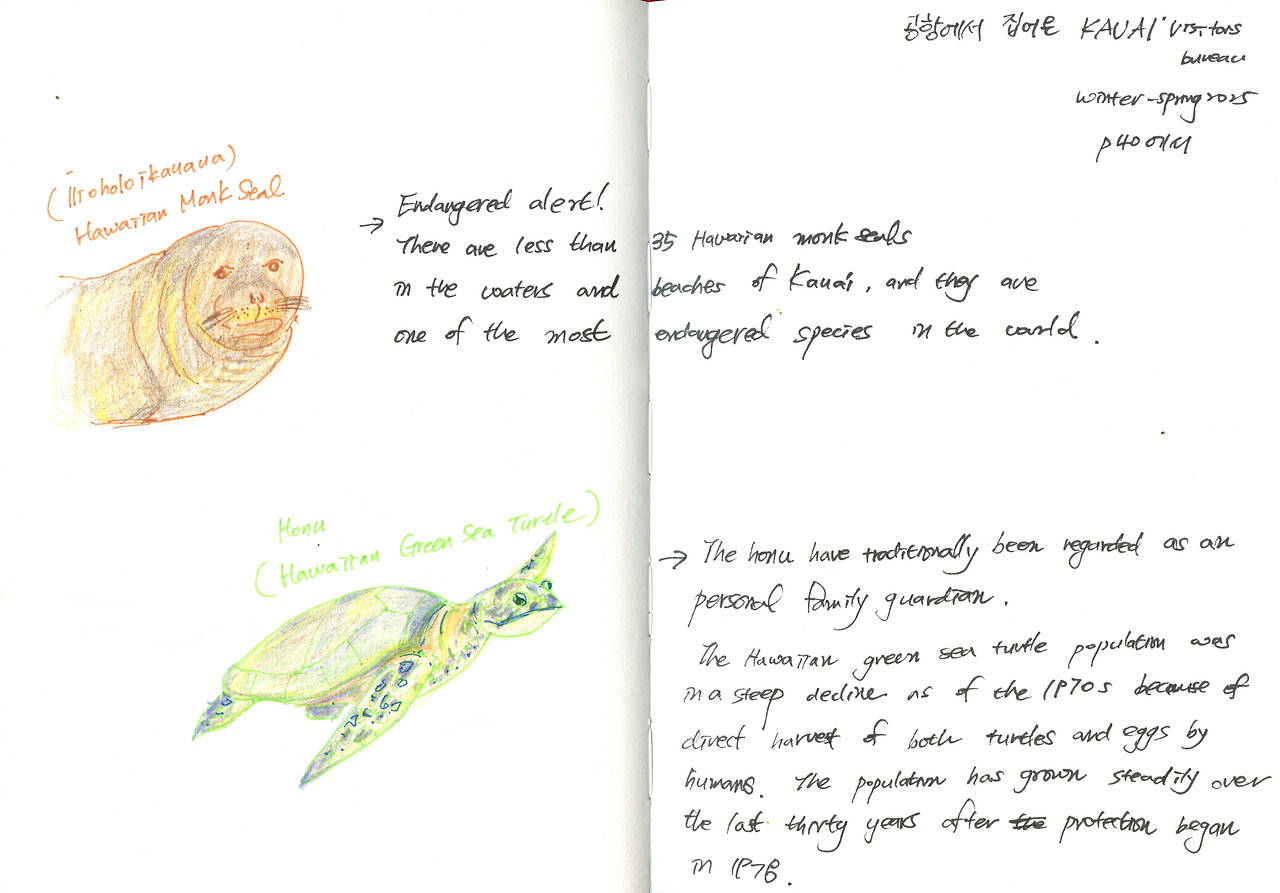 공항에서 집어온 KAUAI Visitors
bureau
winter-spring 2025
p40에서
(Ilioholoikauaua)
Hawaiian Monk Seal
→ Endangered alert!
There are less than 35 Hawaiian monk seals
in the waters and beaches of Kauai, and they are
one of the most endangered species in the world.
Honu
(Hawaiian Green Sea Turtle)
→ The honu have traditionally been regarded as an
personal family guardian.
The Hawaiian green sea turtle population was
in a steep decline as of the 1970s because of
direct harvest of both turtles and eggs by
humans. The population has grown steadily over
the last thirty years after the protection began
in 1978.